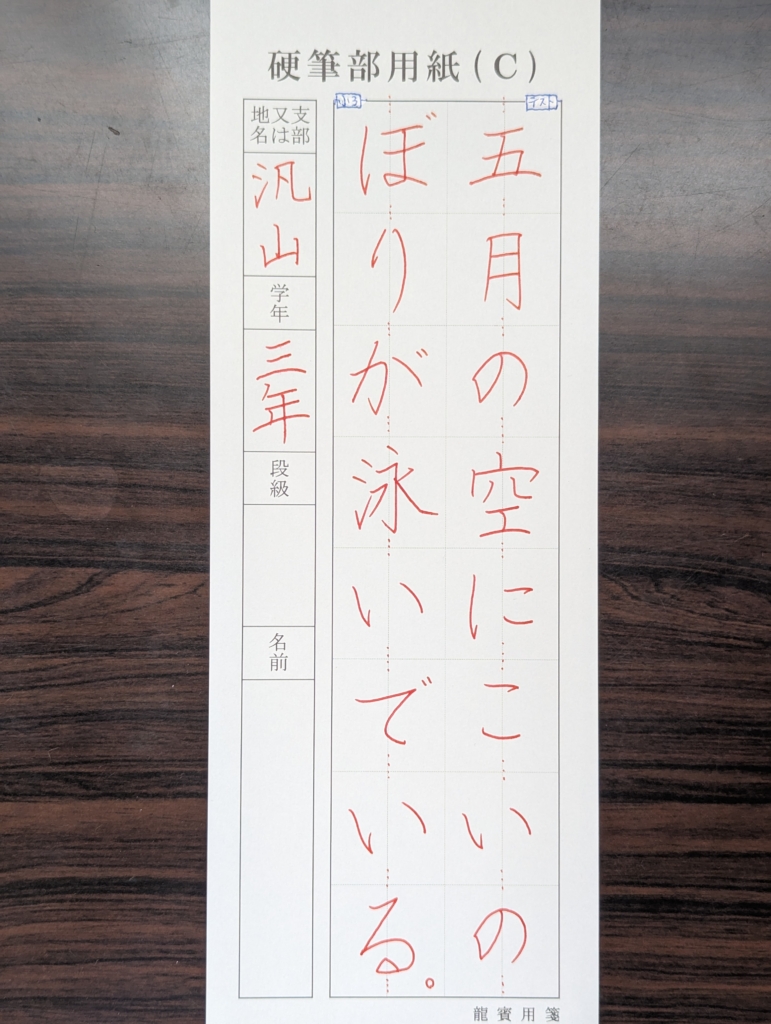 硬筆部用紙(C)
テスト
小3
五月の空にこいの
ぼりが泳いでいる。
支部又は地名
汎山
学年
三年
段級
名前
龍賓用箋